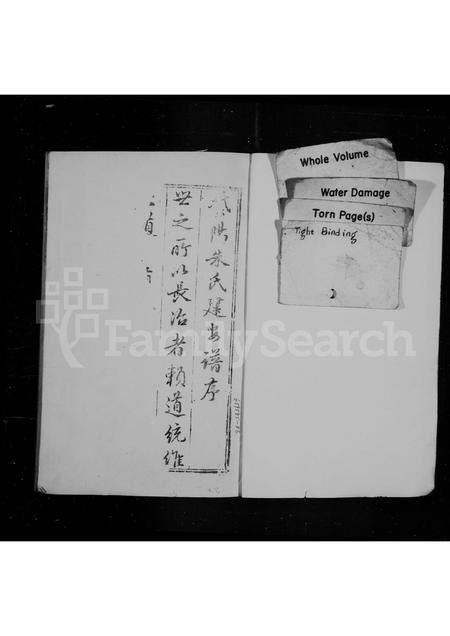 陽朱氏建安譜序
世之所以長治者賴道統維
Whole Volume
Water Damage
Torn Page(s)
Tight Binding
FamilySearch